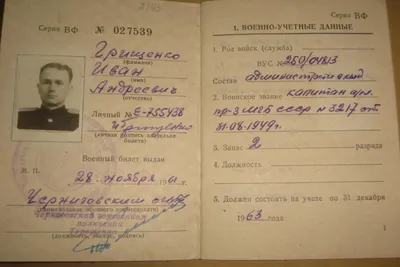 Серия ВФ № 027539
Грищенко
(фамилия)
Иван
(имя)
Андреевич
(отчество)
Личный № Е-755438
(личная подпись владельца
билета)
Военный билет выдан
М. П.
28 ноября 1961 г.
Черниговским
(должность, звание, подпись)
Серия ВФ
1. ВОЕННО-УЧЕТНЫЕ ДАННЫЕ
1. Род войск (служба)
ВУС № 250/
Состав административный
2. Воинское звание капитан
пр-з МГБ СССР № 3217 от
31.08.1949 г.
3. Запас 2 разряда
4. Должность
5. Должен состоять на учете по 31 декабря
1963 года
1